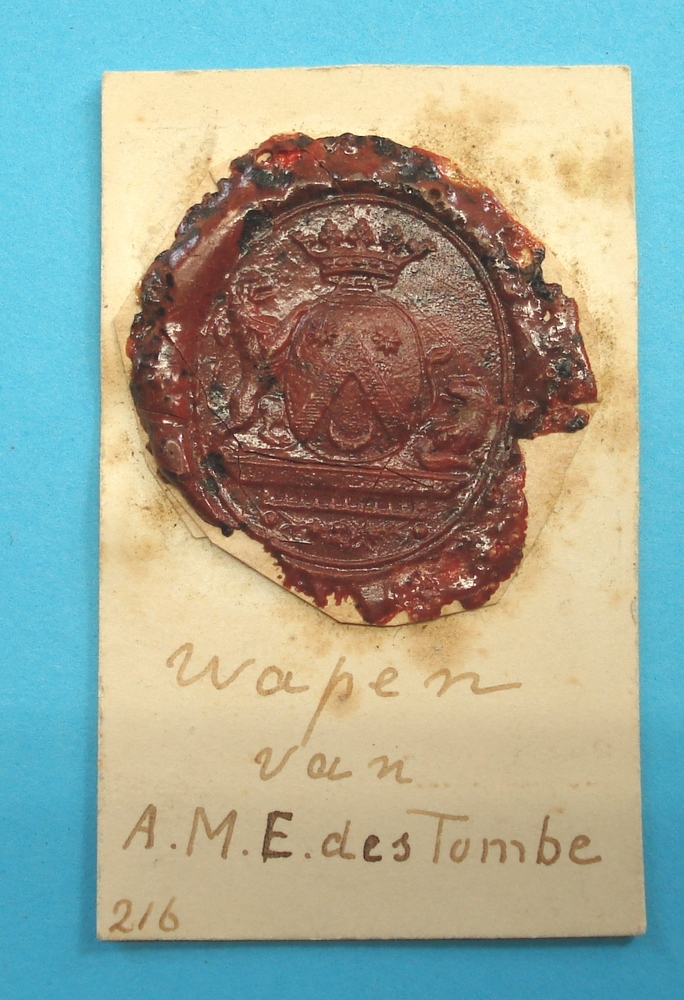 Wapen
van
A.M.E. des Tombe
216